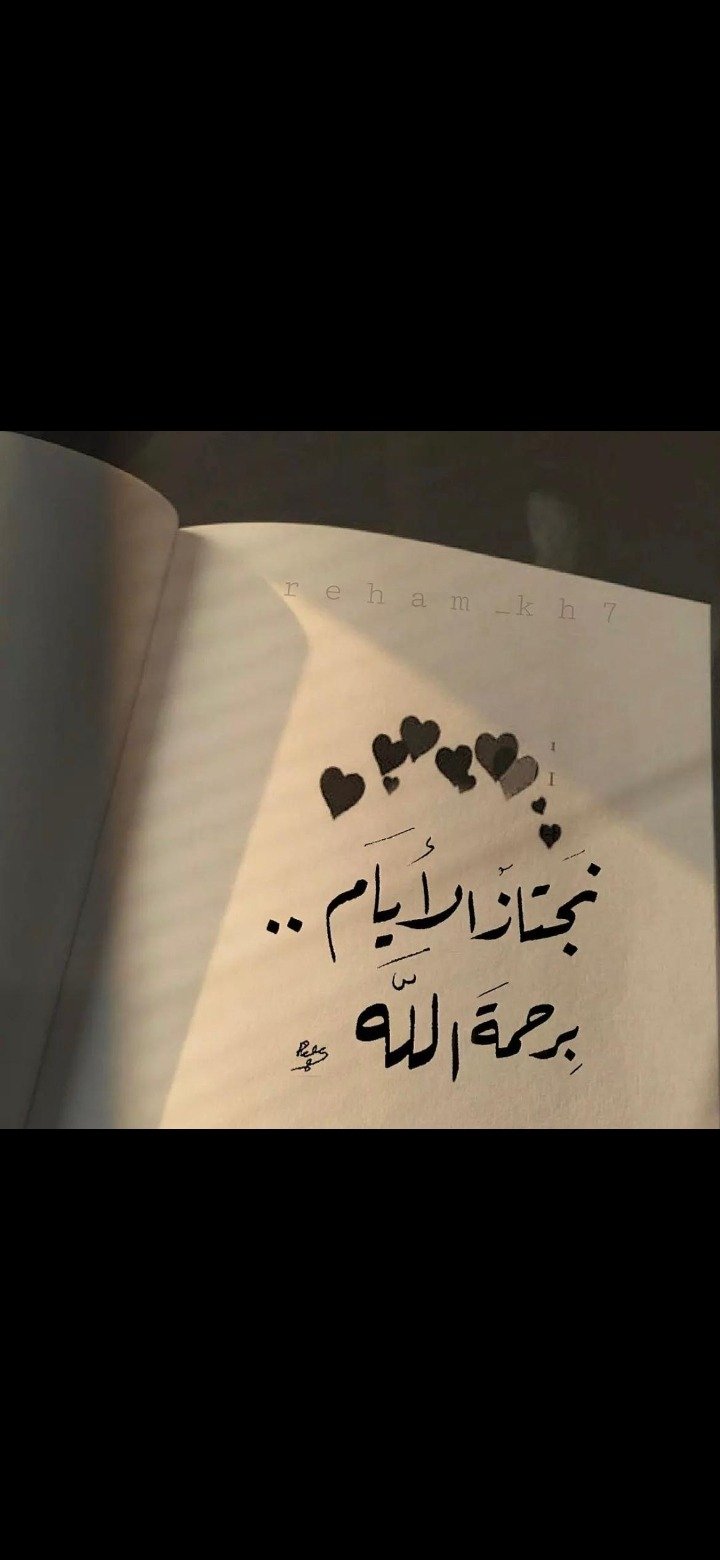 reham_kh7
نَجتازُ الأيَام ..
بِرحمَة اللَّه